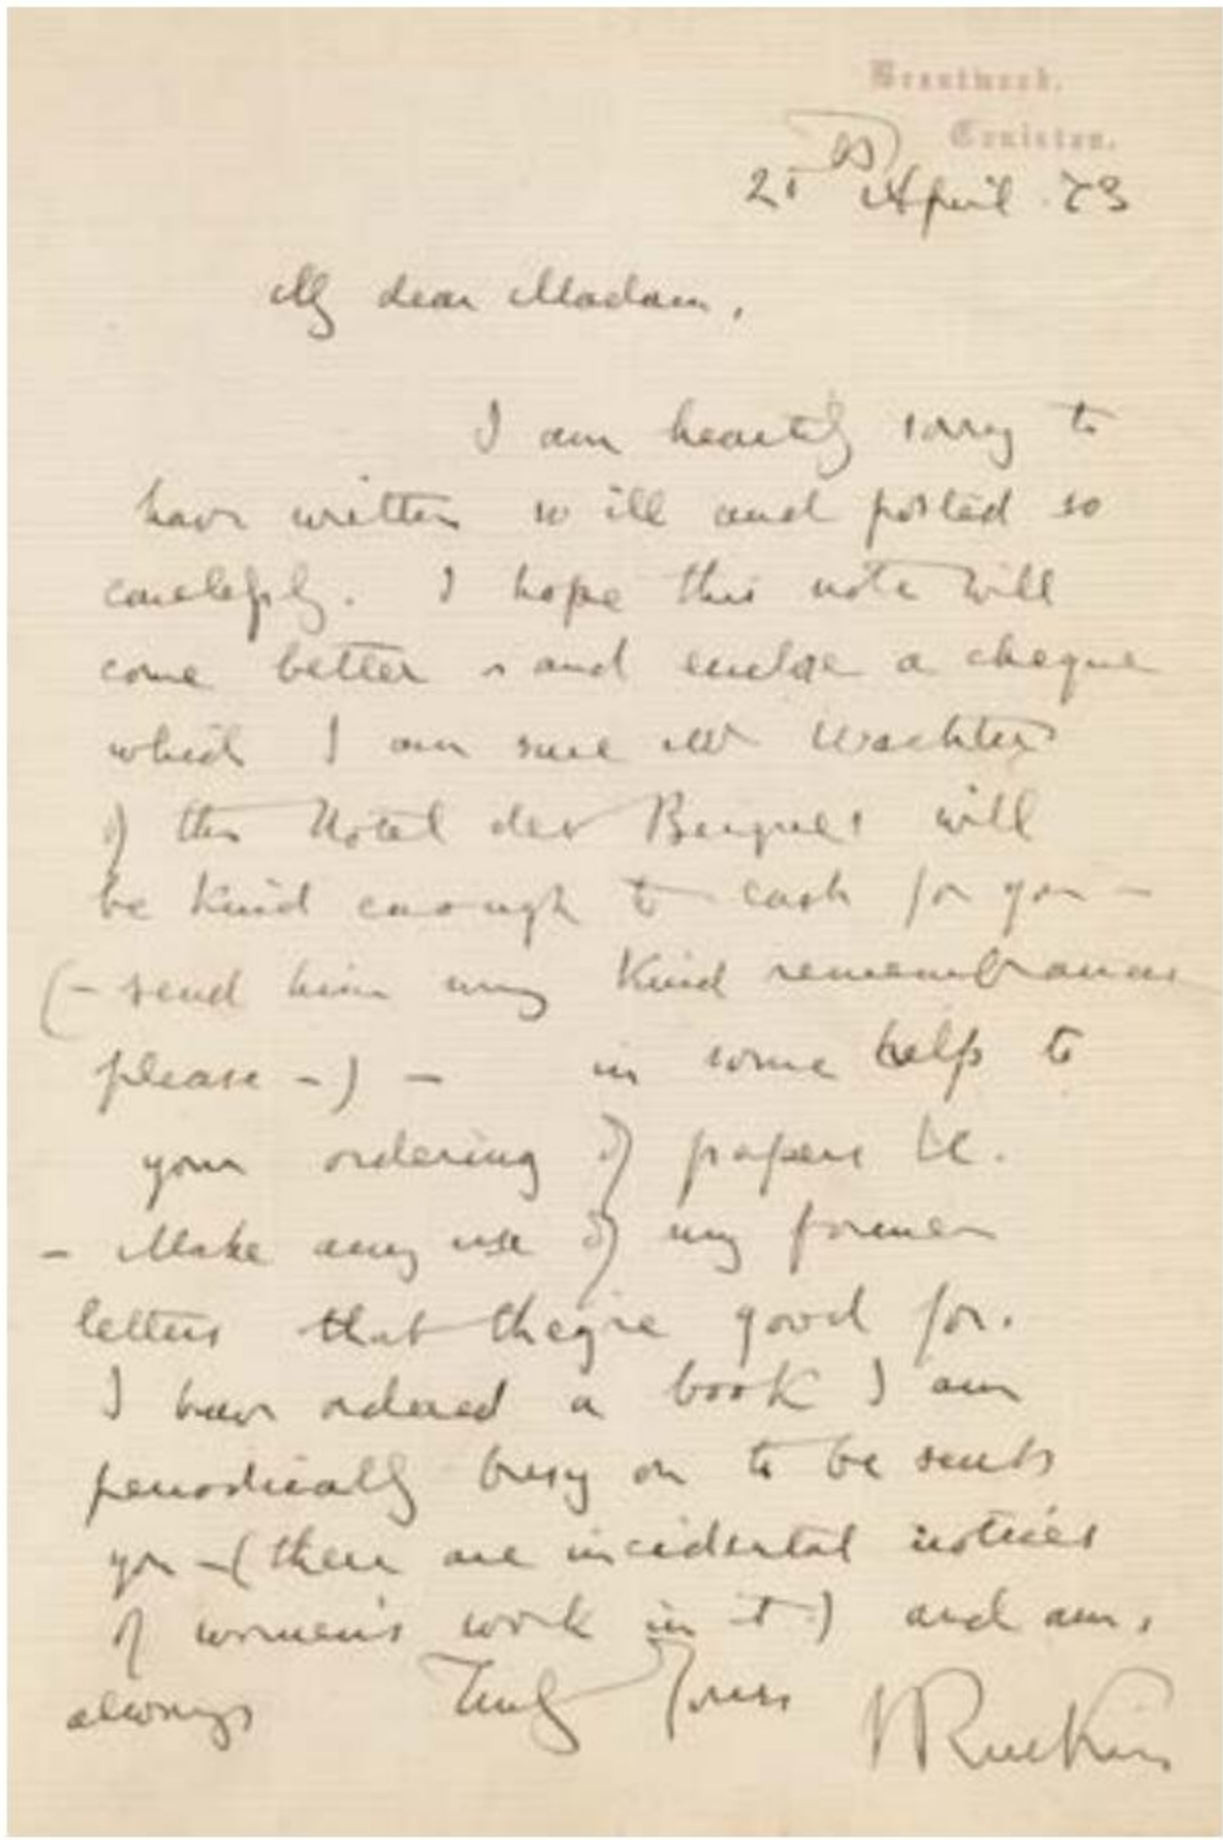 Brantwood.
Coniston.
21st April. 83
My dear Madam,
I am heartily sorry to
have written so ill and posted so
carelessly. I hope this note will
come better - and enclose a cheque
which I am sure Mr Wachter
of the Hotel des Bergues will
be kind enough to cash for you -
(- send him my kind remembrances
please -) - in some help to
your ordering of papers &c.
- Make any use of my former
letters that they're good for.
I have ordered a book I am
periodically busy on to be sent
you - (there are incidental notices
of women's work in it) and am,
always Truly Yours JRuskin